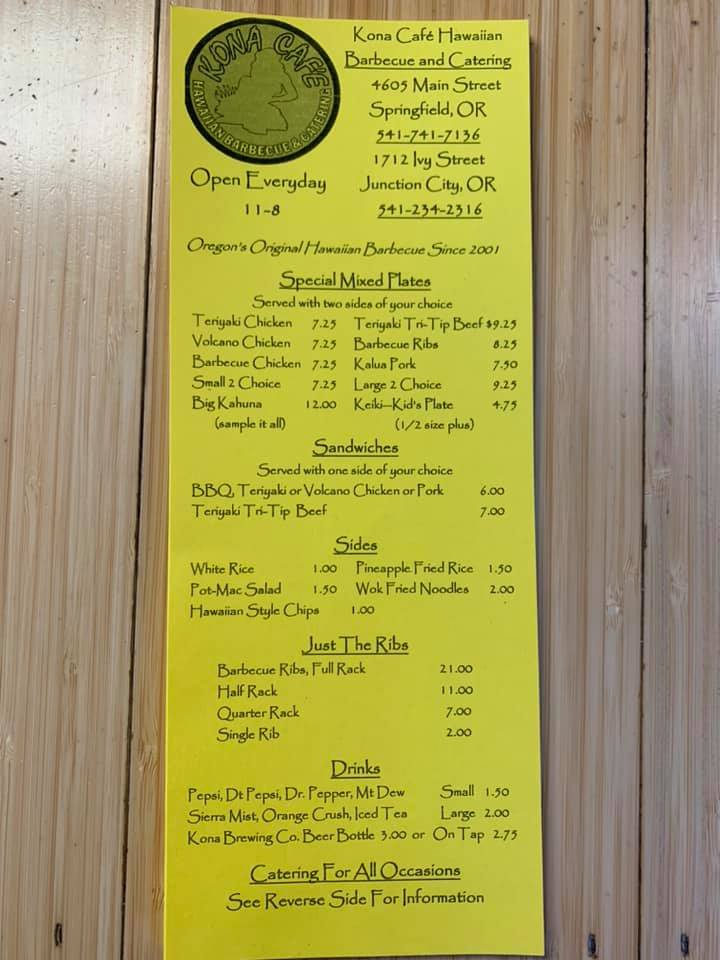 KONA CAFE
HAWAIIAN BARBECUE & CATERING
Kona Café Hawaiian
Barbecue and Catering
4605 Main Street
Springfield, OR
541-741-7136
1712 Ivy Street
Junction City, OR
541-234-2316
Open Everyday
11-8
Oregon's Original Hawaiian Barbecue Since 2001
Special Mixed Plates
Served with two sides of your choice
Teriyaki Chicken 7.25 Teriyaki Tri-Tip Beef $9.25
Volcano Chicken 7.25 Barbecue Ribs 8.25
Barbecue Chicken 7.25 Kalua Pork 7.50
Small 2 Choice 7.25 Large 2 Choice 9.25
Big Kahuna 12.00 Keiki—Kid's Plate 4.75
(sample it all) (1/2 size plus)
Sandwiches
Served with one side of your choice
BBQ, Teriyaki or Volcano Chicken or Pork 6.00
Teriyaki Tri-Tip Beef 7.00
Sides
White Rice 1.00 Pineapple Fried Rice 1.50
Pot-Mac Salad 1.50 Wok Fried Noodles 2.00
Hawaiian Style Chips 1.00
Just The Ribs
Barbecue Ribs, Full Rack 21.00
Half Rack 11.00
Quarter Rack 7.00
Single Rib 2.00
Drinks
Pepsi, Dt Pepsi, Dr. Pepper, Mt Dew Small 1.50
Sierra Mist, Orange Crush, Iced Tea Large 2.00
Kona Brewing Co. Beer Bottle 3.00 or On Tap 2.75
Catering For All Occasions
See Reverse Side For Information